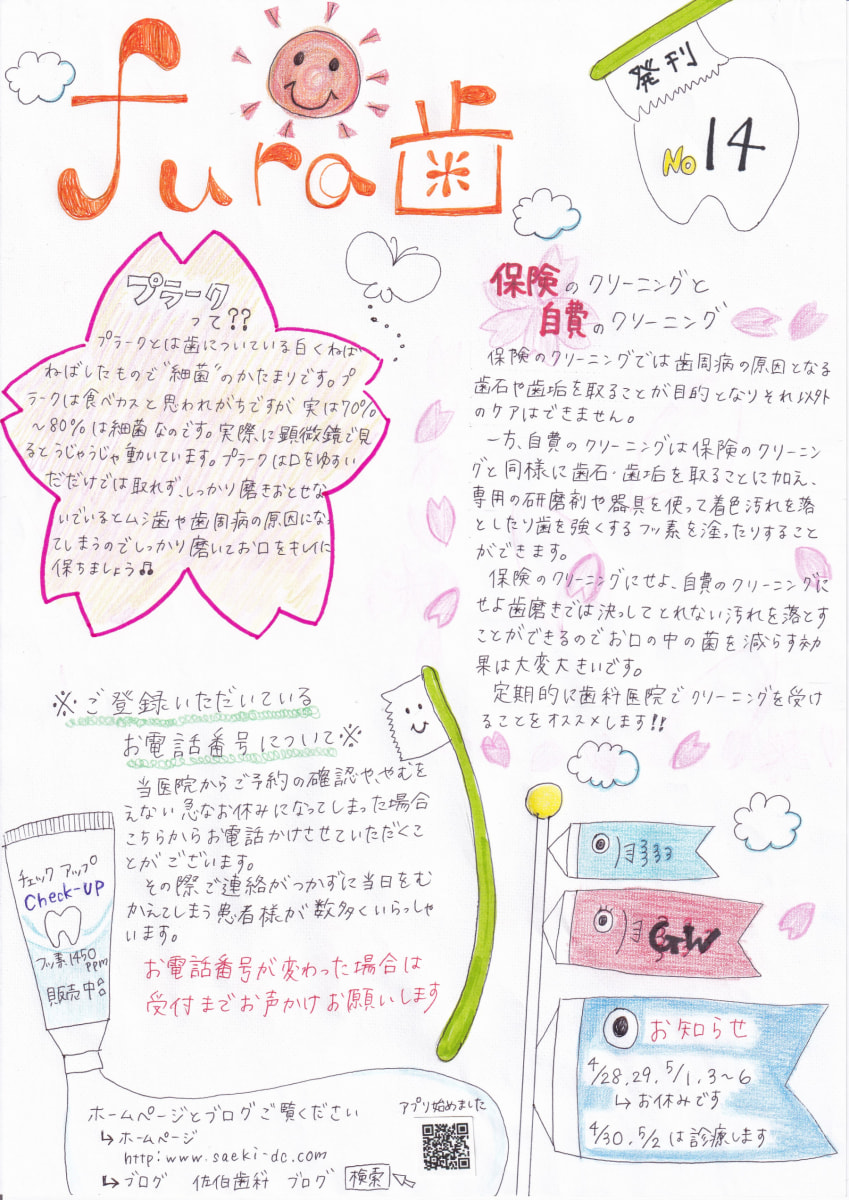 fura歯
発刊
No 14
プラーク
って??
プラークとは歯についている白くねば
ねばしたもので"細菌"のかたまりです。プ
ラークは食べカスと思われがちですが実は70%
~80%は細菌なのです。実際に顕微鏡で見
るとうじゃうじゃ動いています。プラークは口をゆすい
だだけでは取れず、しっかり磨きおとせな
いでいるとムシ歯や歯周病の原因になっ
てしまうのでしっかり磨いてお口をキレイに
保ちましょう♫
保険のクリーニングと
自費のクリーニング
保険のクリーニングでは歯周病の原因となる
歯石や歯垢を取ることが目的となりそれ以外
のケアはできません。
一方、自費のクリーニングは保険のクリーニン
グと同様に歯石・歯垢を取ることに加え、
専用の研磨剤や器具を使って着色汚れを落
としたり歯を強くするフッ素を塗ったりすること
ができます。
保険のクリーニングにせよ、自費のクリーニングに
せよ歯磨きでは決っしてとれない汚れを落とす
ことができるのでお口の中の菌を減らす効
果は大変大きいです。
定期的に歯科医院でクリーニングを受け
ることをオススメします!!
※ご登録いただいている
お電話番号について※
当医院からご予約の確認や、やむを
えない急なお休みになってしまった場合
こちらからお電話かけさせていただくこ
とがございます。
その際ご連絡がつかずに当日をむ
かえてしまう患者様が数多くいらっしゃ
います。
お電話番号が変わった場合は
受付までお声かけお願いします
チェックアップ
Check-UP
フッ素1450
ppm
販売中
ホームページとブログご覧ください
↳ホームページ
http:www.saeki-dc.com
↳ブログ 佐伯歯科 ブログ 検索
アプリ始めました
GW
お知らせ
4/28.29.5/1.3~6
↳お休みです
4/30.5/2は診療します